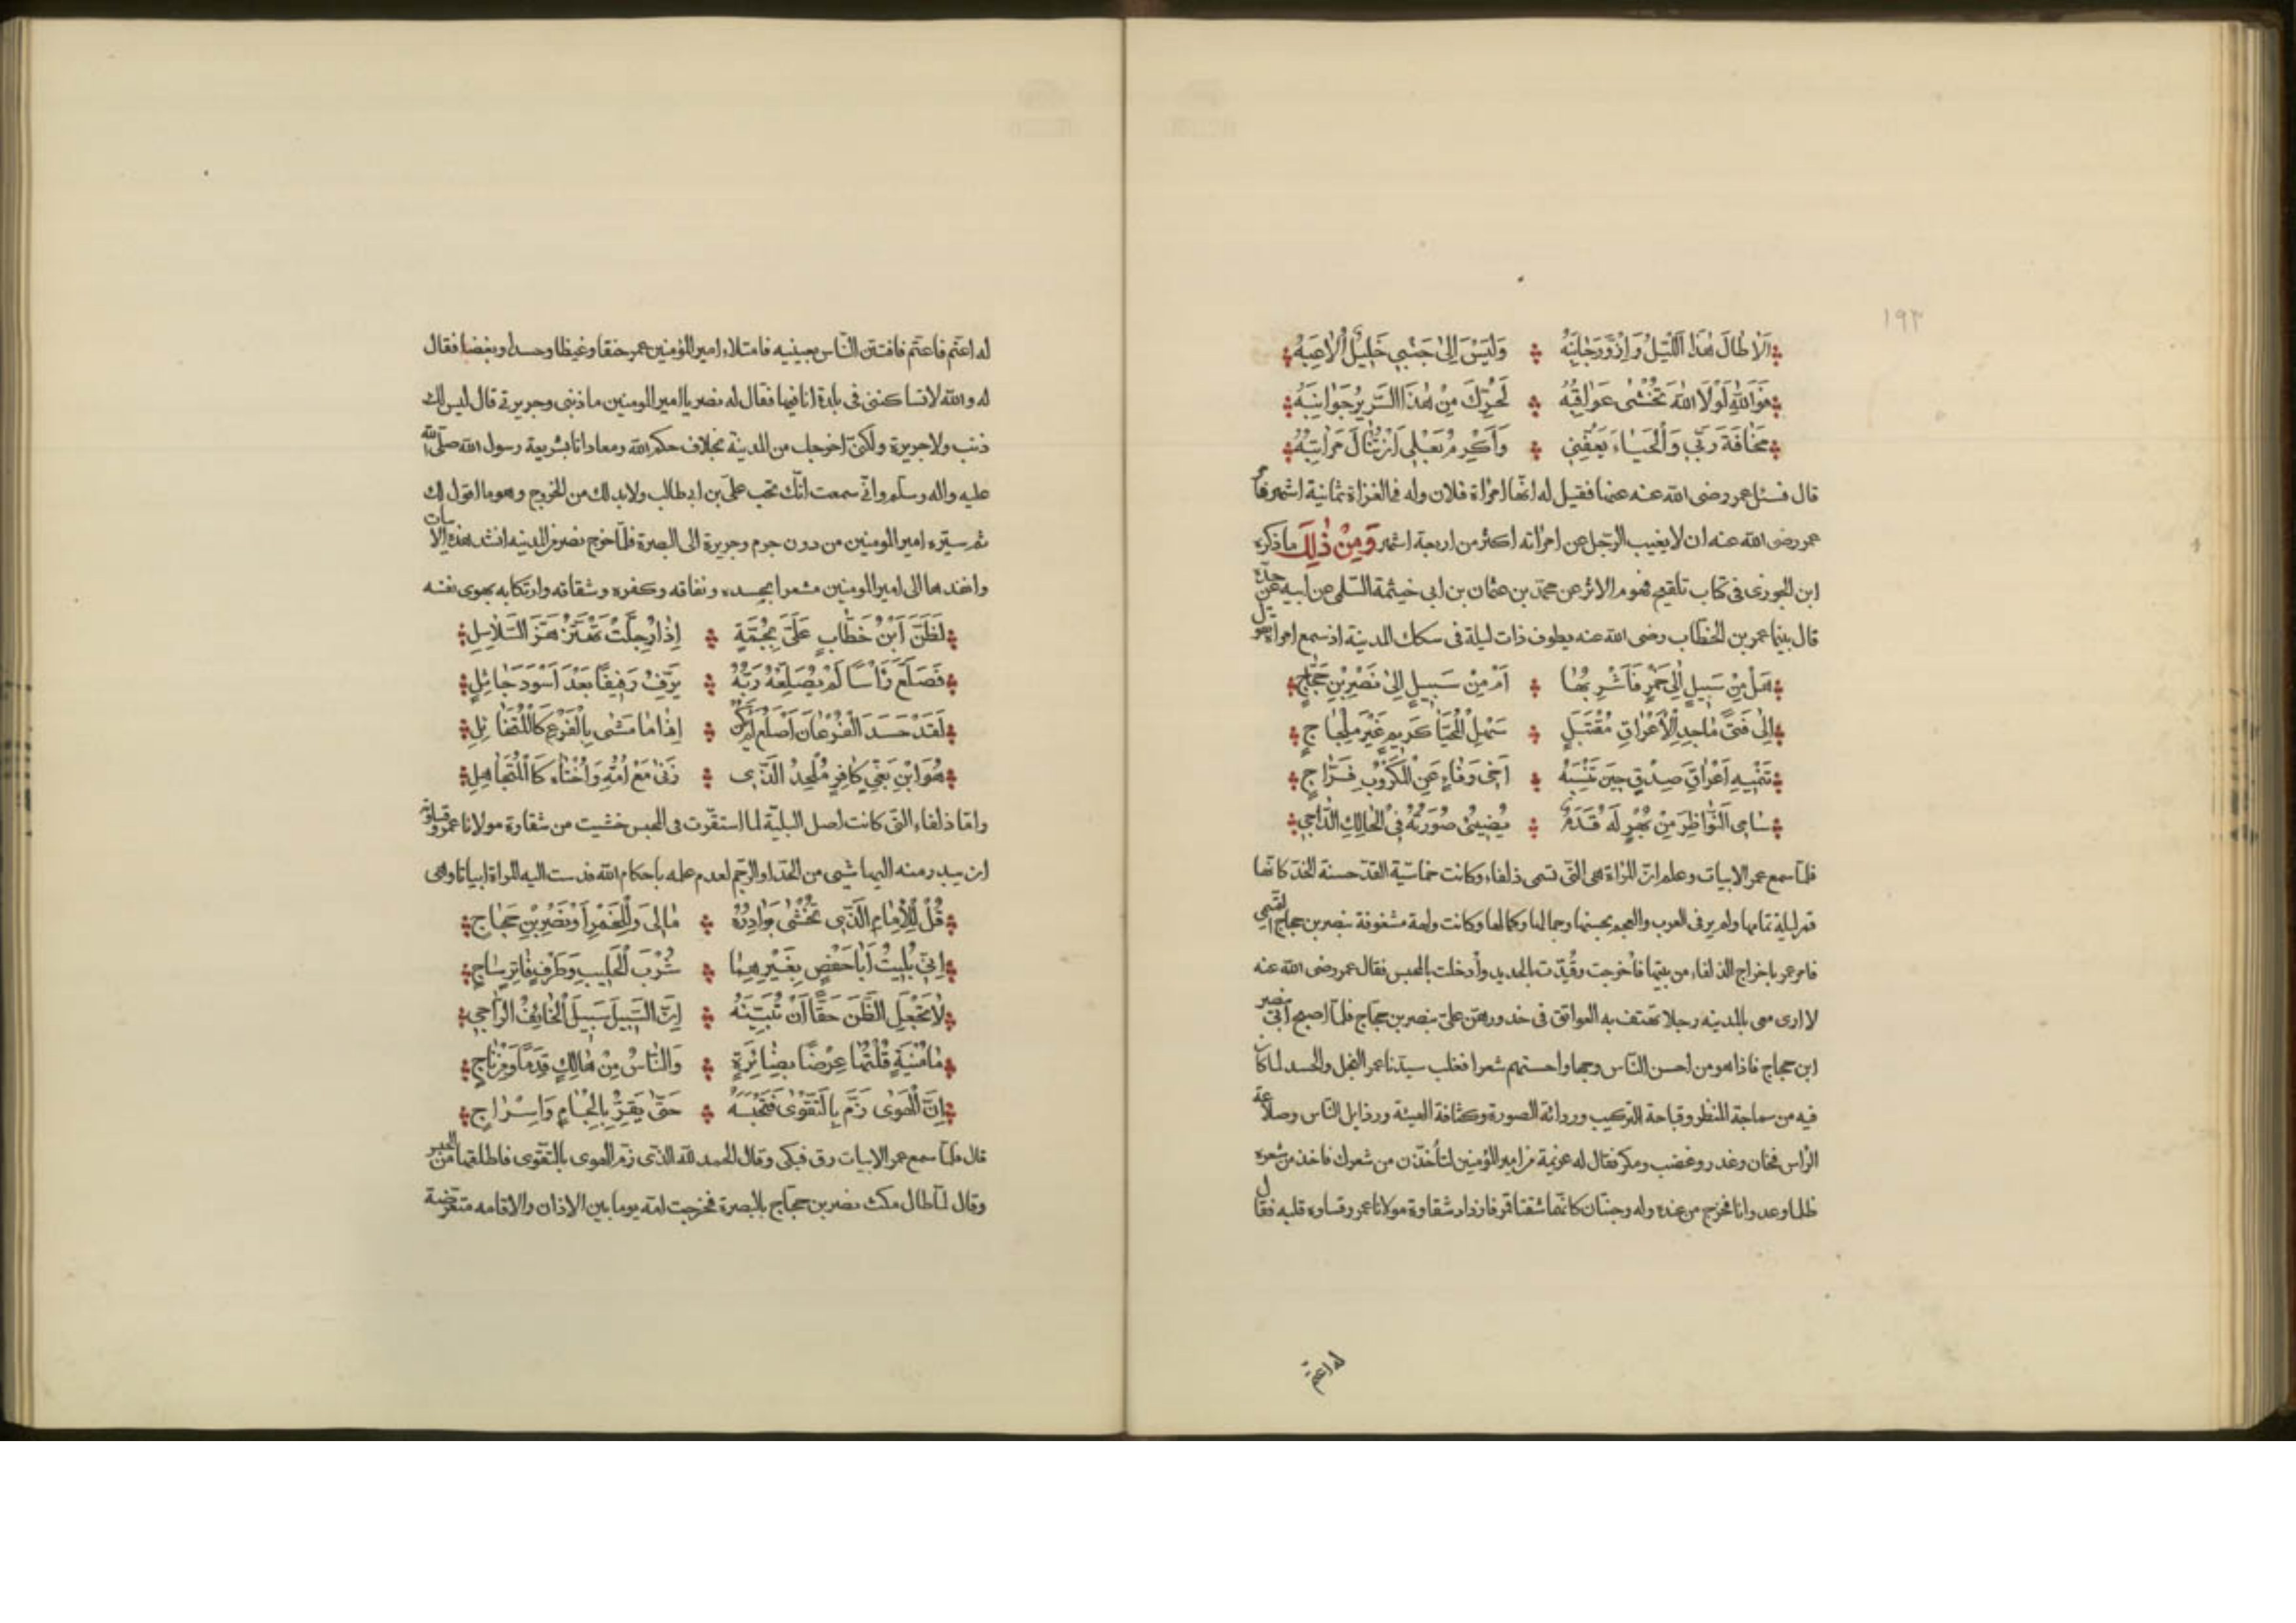 ١٩٣
اَلَا طَالَ هٰذَا اللَّيْلُ وَازْوَرَّ جَانِبُهُ وَلَيْسَ اِلىٰ جَنْبِي خَلِيْلٌ اُلَاعِبُهُ
فَوَاللّٰهِ لَوْلَا اللّٰهُ تُخْشٰى عَوَاقِبُهُ لَحُرِّكَ مِنْ هٰذَا السَّرِيْرِ جَوَانِبُهُ
مَخَافَةَ رَبِّي وَالْحَيَاءُ يَعُفُّنِي وَاُكْرِمُ بَعْلِي اَنْ تُنَالَ مَرَاتِبُهُ
قال فسئل عمر رضى الله عنه عنها فقيل له انّها امراة فلان وله فى الغزاة ثمانية اشهر فامر
عمر رضى الله عنه ان لا يغيب الرّجل عن امراته اكثر من اربعة اشهر وَمِنْ ذٰلِكَ ما ذكره
ابن الجوزى فى كتاب تلقيح فهوم الاثر عن محمّد بن عثمان بن ابى خيثمة السّلمى عن ابيه عن جدّه
قال بينما عمر بن الخطّاب رضى الله عنه يطوف ذات ليلة فى سكك المدينة اذ سمع امراة تقول
هَلْ مِنْ سَبِيلٍ اِلىٰ خَمْرٍ فَاَشْرِبَهَا اَمْ مِنْ سَبِيلٍ اِلىٰ نَصْرِ بْنِ حَجَّاجٍ
اِلىٰ فَتًى مَاجِدِ الْاَعْرَاقِ مُقْتَبَلٍ سَهْلِ الْمُحَيَّا كَرِيمٍ غَيْرِ مِلْجَاجٍ
تَنْمِيهِ اَعْرَاقُ صِدْقٍ حِينَ تَنْسِبُهُ اَخِى وَفَاءٍ عَنِ الْمَكْرُوبِ فَرَّاجٍ
سَامِى النَّوَاظِرِ مِنْ بُهْرٍ لَهُ قَدَمٌ يُضِيئُ صُورَتُهُ فِى الْحَالِكِ الدَّاجِى
فلمّا سمع عمر الابيات وعلم انّ المراة هى الّتى تسمى ذلفاء وكانت خماسّية القدّ حسنة الخدّ كانّها
قمر ليلة تمامها ولم ير فى العرب والعجم بحسنها وجمالها وكمالها وكانت ولهة مشغوفة بنصر بن حجاج السّلمى
فامر عمر باخراج الذلفاء من بيتها فاُخرجت وقُيّدت بالحديد واُدخلت بالمحبس فقال عمر رضى الله عنه
لا ارى معى بالمدينه رجلا تهتف به العواتق فى خدورهنّ علىّ بنصر بن حجاج فلمّا اصبح اُتى بنصر
ابن حجاج فاذا هو من احسن النّاس وجها واحسنهم شعرا فغلب سيّدنا عمر البخل والحسد لما كان
فيه من سماجة المنظر وقباحة التركيب ورداءة الصورة وكثافة الهيئة ورذايل النّاس وصلاعة
الرّاس فخان وغدر وغضب ومكر فقال له عزيمة من امير المؤمنين لتأخذن من شعرك فاخذ من شعره
ظلما وعدوانا فخرج من عنده وله وجنتان كانّهما شقتا قمر فازداد شقاوة مولانا عمر وقساوة قلبه فقال
له اعتم
له اعتم فاعتم فافتتن النّاس بعينيه فامتلاء امير المؤمنين عمر حنقا وغيظا وحسدا وبغضا فقال
له والله لا تساكننى فى بلدة انا فيها فقال له نصر يا امير المومنين ما ذنبى وجريرتى قال ليس لك
ذنب ولا جريرة ولكنّى اخرجك من المدينة بخلاف حكم الله ومعاداتا بشريعة رسول الله صلّى الله
عليه واله وسلّم وانّى سمعت انّك تحب علىّ بن ابى طالب ولا بد لك من الخروج وهو ما اقول لك
ثم سيّره امير المومنين من دون جرم وجريرة الى البصرة فلمّا خرج نصر من المدينه انشد هذه الابيات
وانفذها الى امير المومنين مشعرا بحسده ونفاقه وكفره وشقاقه وارتكابه بهوى نفسه
لَظَنَّ ابْنُ خَطَّابٍ عَلَىَّ بِجُمَّةٍ اِذَا رُجِّلَتْ تَهْتَزُّ هَزَّ السَّلَاسِلِ
فَصَلَّعَ رَأْسًا لَمْ يُصَلِّعْهُ رَبُّهُ يَرِفُّ رَفِيْفًا بَعْدَ اَسْوَدَ جَائِلٍ
لَقَدْ حَسَدَ الْفُرْعَانَ اَصْلَعُ لَمْ يَكُنْ اِذَا مَا مَشٰى بِالْفَرْعِ كَالْمُتَخَايِلِ
هُوَ ابْنُ بَغِىٍّ كَافِرٍ مُلْحِدُ الَّذِى زَنٰى مَعْ اُمِّهِ وَاُخْتَاهُ كَالْمُتَجَاهِلِ
وامّا ذلفاء الّتى كانت اصل البليّة لمّا استقرّت فى المحبس خشيت من شقاوة مولانا عمر وقساوته
ان يبدر منه اليها شيى من الحدّ او الرّجم لعدم علمه باحكام الله فدست اليه المراة ابياتا وهى
قُلْ لِلْاِمَامِ الَّذِى تُخْشٰى بَوَادِرُهُ مَالِىَ وَلِلْخَمْرِ اَوْ نَصْرِ بْنِ حَجَّاجٍ
اِنِّى بُلِيتُ اَبَا حَفْصٍ بِغَيْرِهِمَا شُرْبَ الْحَلِيبِ وَطَرْفٍ فَاتِرٍ سَاجٍ
لَا تَجْعَلِ الظَّنَّ حَقًّا اَنْ تُبَيِّنَهُ اِنَّ السَّبِيلَ سَبِيلُ الْخَائِفِ الرَّاجِى
مَا مُنْيَةٌ قُلْتُهَا عِرْضًا بِضَائِرَةٍ وَالنَّاسُ مِنْ هَالِكٍ قِدَمًا وَمِنْ نَاجٍ
اِنَّ الْهَوٰى زَمَّ بِالتَّقْوٰى فَتَحْبِسُهُ حَتّٰى يَقِرَّ بِاِلْجَامٍ وَاِسْرَاجٍ
قال فلمّا سمع عمر الابيات رق فبكى وقال الحمد لله الّذى زمّ الهوى بالتّقوى فاطلقها من الحبس
وقال لمّا طال مكث نصر بن حجّاج بالبصرة فخرجت امّه يوما بين الاذان والاقامه متعرّضة